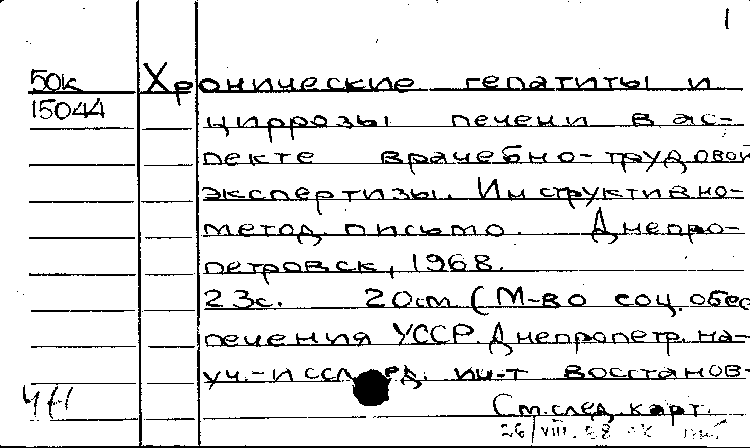 1
50к Хронические гепатиты и
15044 циррозы печени в ас-
пекте врачебно-трудовой
экспертизы. Инструктивно-
метод. письмо. Днепро-
петровск, 1968.
23с. 20см (М-во соц. обес
печения УССР. Днепропетр. на-
уч.-иссл ин-т восстанов-
См. след. карт.
26/VIII.68